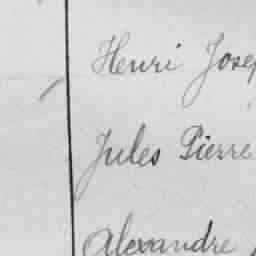 Henri Jose
Jules Pierre
Alexandre